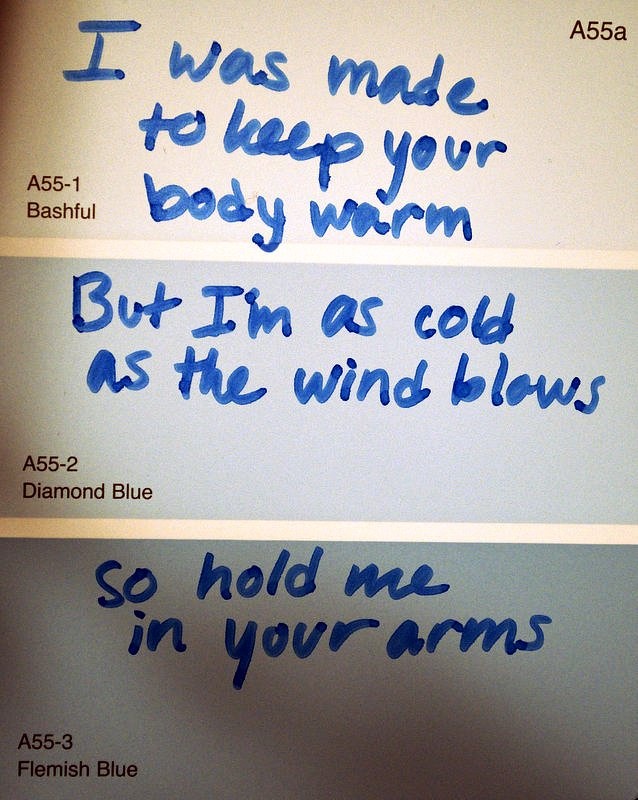 A55a
I was made
to keep your
body warm
A55-1
Bashful
But I'm as cold
as the wind blows
A55-2
Diamond Blue
so hold me
in your arms
A55-3
Flemish Blue